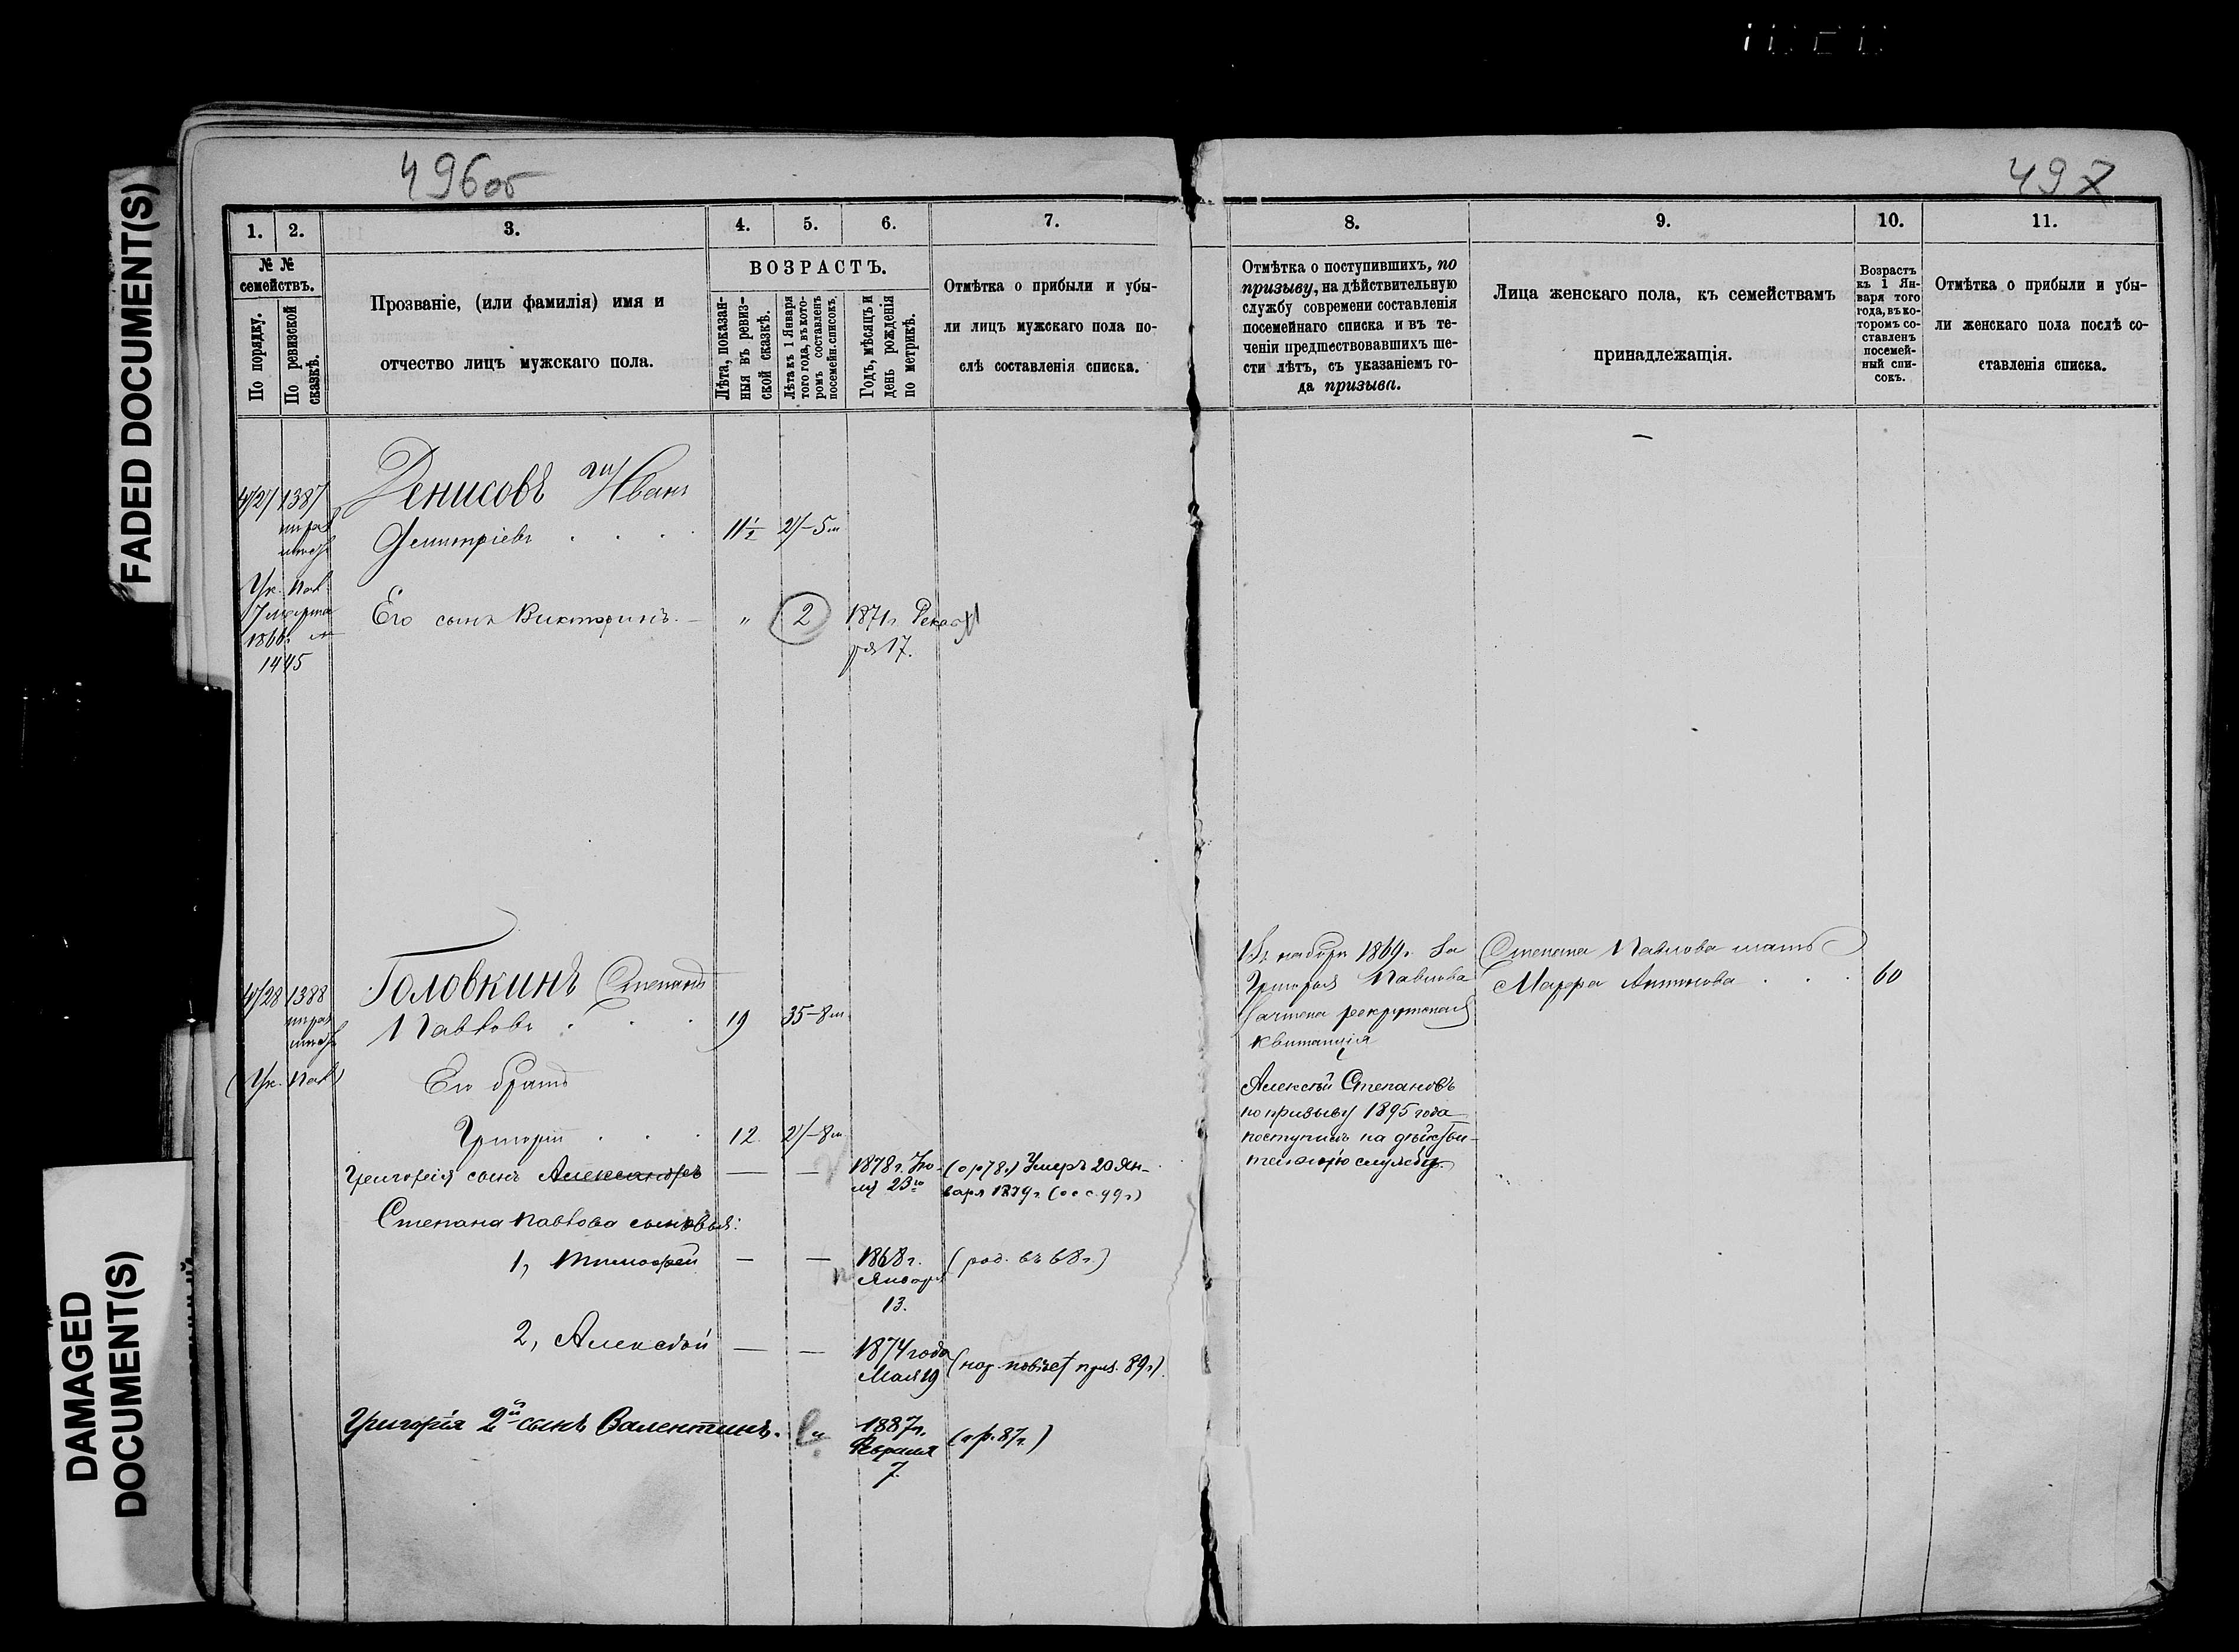 FADED DOCUMENT(S)
DAMAGED
DOCUMENT(S)
496об
497
1. 2. 3. 4. 5. 6. 7. 8. 9. 10. 11.
№ №
семействъ.
По порядку.
По ревизской
сказкѣ.
Прозваніе, (или фамилія) имя и
отчество лицъ мужскаго пола.
ВОЗРАСТЪ.
Лѣта, показан-
ныя въ ревиз-
ской сказкѣ.
Лѣта къ 1 Января
того года, въ кото-
ромъ составленъ
посемейн. списокъ.
Годъ, мѣсяцъ и
день рожденія
по метрикѣ.
Отмѣтка о прибыли и убы-
ли лицъ мужскаго пола по-
слѣ составленія списка.
Отмѣтка о поступившихъ, по
призыву, на дѣйствительную
службу современи составленія
посемейнаго списка и въ те-
ченіи предшествовавшихъ ше-
сти лѣтъ, съ указаніемъ го-
да призыва.
Лица женскаго пола, къ семействамъ
принадлежащія.
Возрастъ
къ 1 Ян-
варя того
года, въ ко-
торомъ со-
ставленъ
посемей-
ный спи-
сокъ.
Отмѣтка о прибыли и убы-
ли женскаго пола послѣ со-
ставленія списка.
1387 Денисовъ Иванъ
Дмитріевъ . . . 11½ 27-5м
Ук. Пал.
17 марта
1866г. №
1445
Его сынъ Викторинъ. — „ 2 1871г. Декаб
ря 17.
1388 Головкинъ Степанъ
Павловъ . . . 19 35-8м
Въ наборъ 1869г. За
Григорья Павлова
зачтена рекрутская
квитанція
Степана Павлова мать
Марфа Антипова . . . 60
(Ук. Пал.)
Его братъ
Григорій . . . 12. 27-8м
Алексѣй Степановъ
по призыву 1895 года
поступилъ на дѣйстви-
тельную службу.
Григорія сынъ Александръ — — 1878г. Ію-
ля 23го
(о р 78г.) Умеръ 20 Ян-
варя 1879г.
Степана Павлова сыновья:
1, Тимофей — — 1868г.
Января
13.
(род. въ 68г.)
2, Алексѣй — — 1874 года
Мая 19
89г.).
Григорія 2й сынъ Валентинъ. „ 1887г.
Февраля
7.
(о р. 87г.)